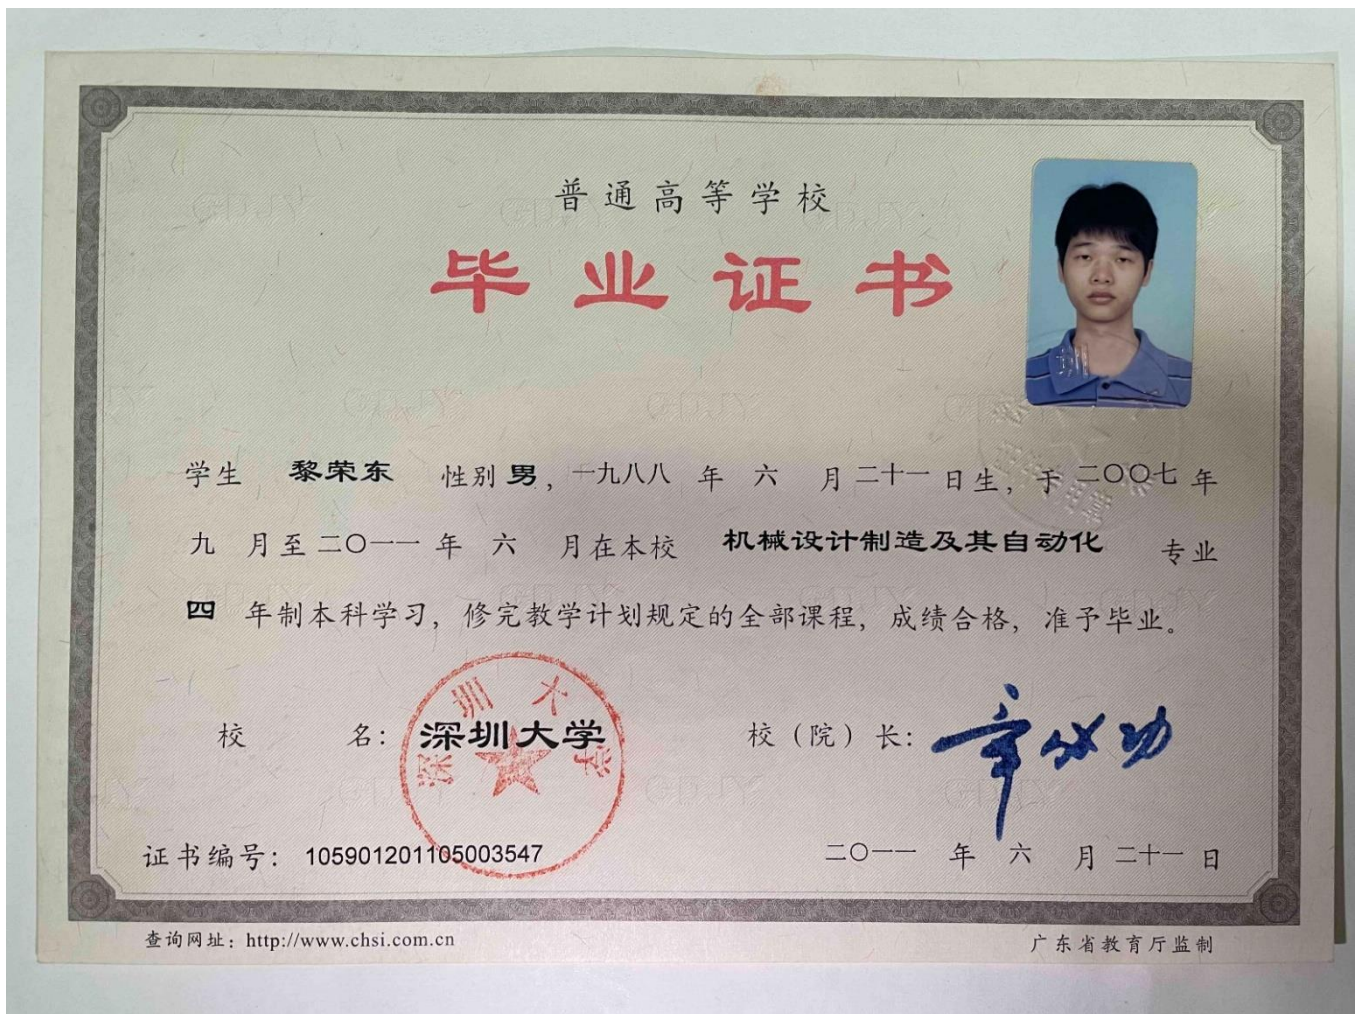 普通高等学校
毕业证书
学生 黎荣东 性别 男，一九八八 年 六 月 二十一 日生，于 二〇〇七 年
九 月至 二〇一一 年 六 月在本校 机械设计制造及其自动化 专业
四 年制本科学习，修完教学计划规定的全部课程，成绩合格，准予毕业。
深圳大学
校 名：深圳大学 校（院）长：章必功
证书编号：105901201105003547 二〇一一 年 六 月 二十一 日
查询网址：http://www.chsi.com.cn 广东省教育厅监制